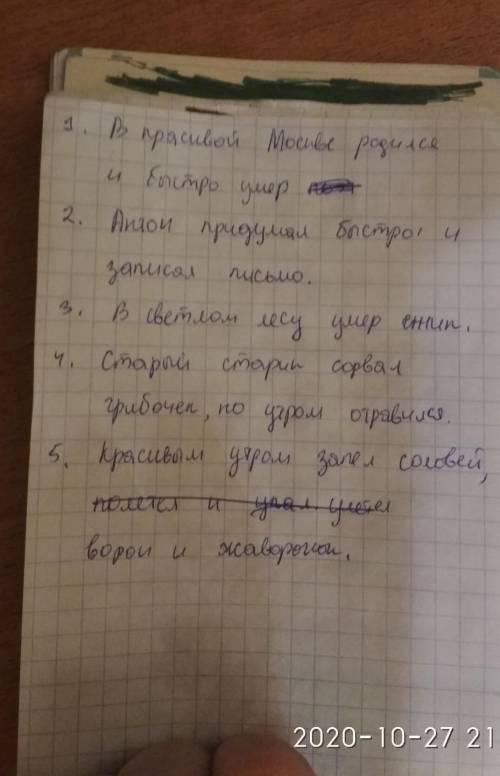 1. В красивой Москве родился
и быстро умер
2. Антон придумал быстро и
записал письмо.
3. В светлом лесу умер ёжик.
4. Старый старик сорвал
грибочек, но утром отравился.
5. Красивым утром запел соловей,
полетел и упал улетел
ворон и жаворонок.
2020-10-27 21